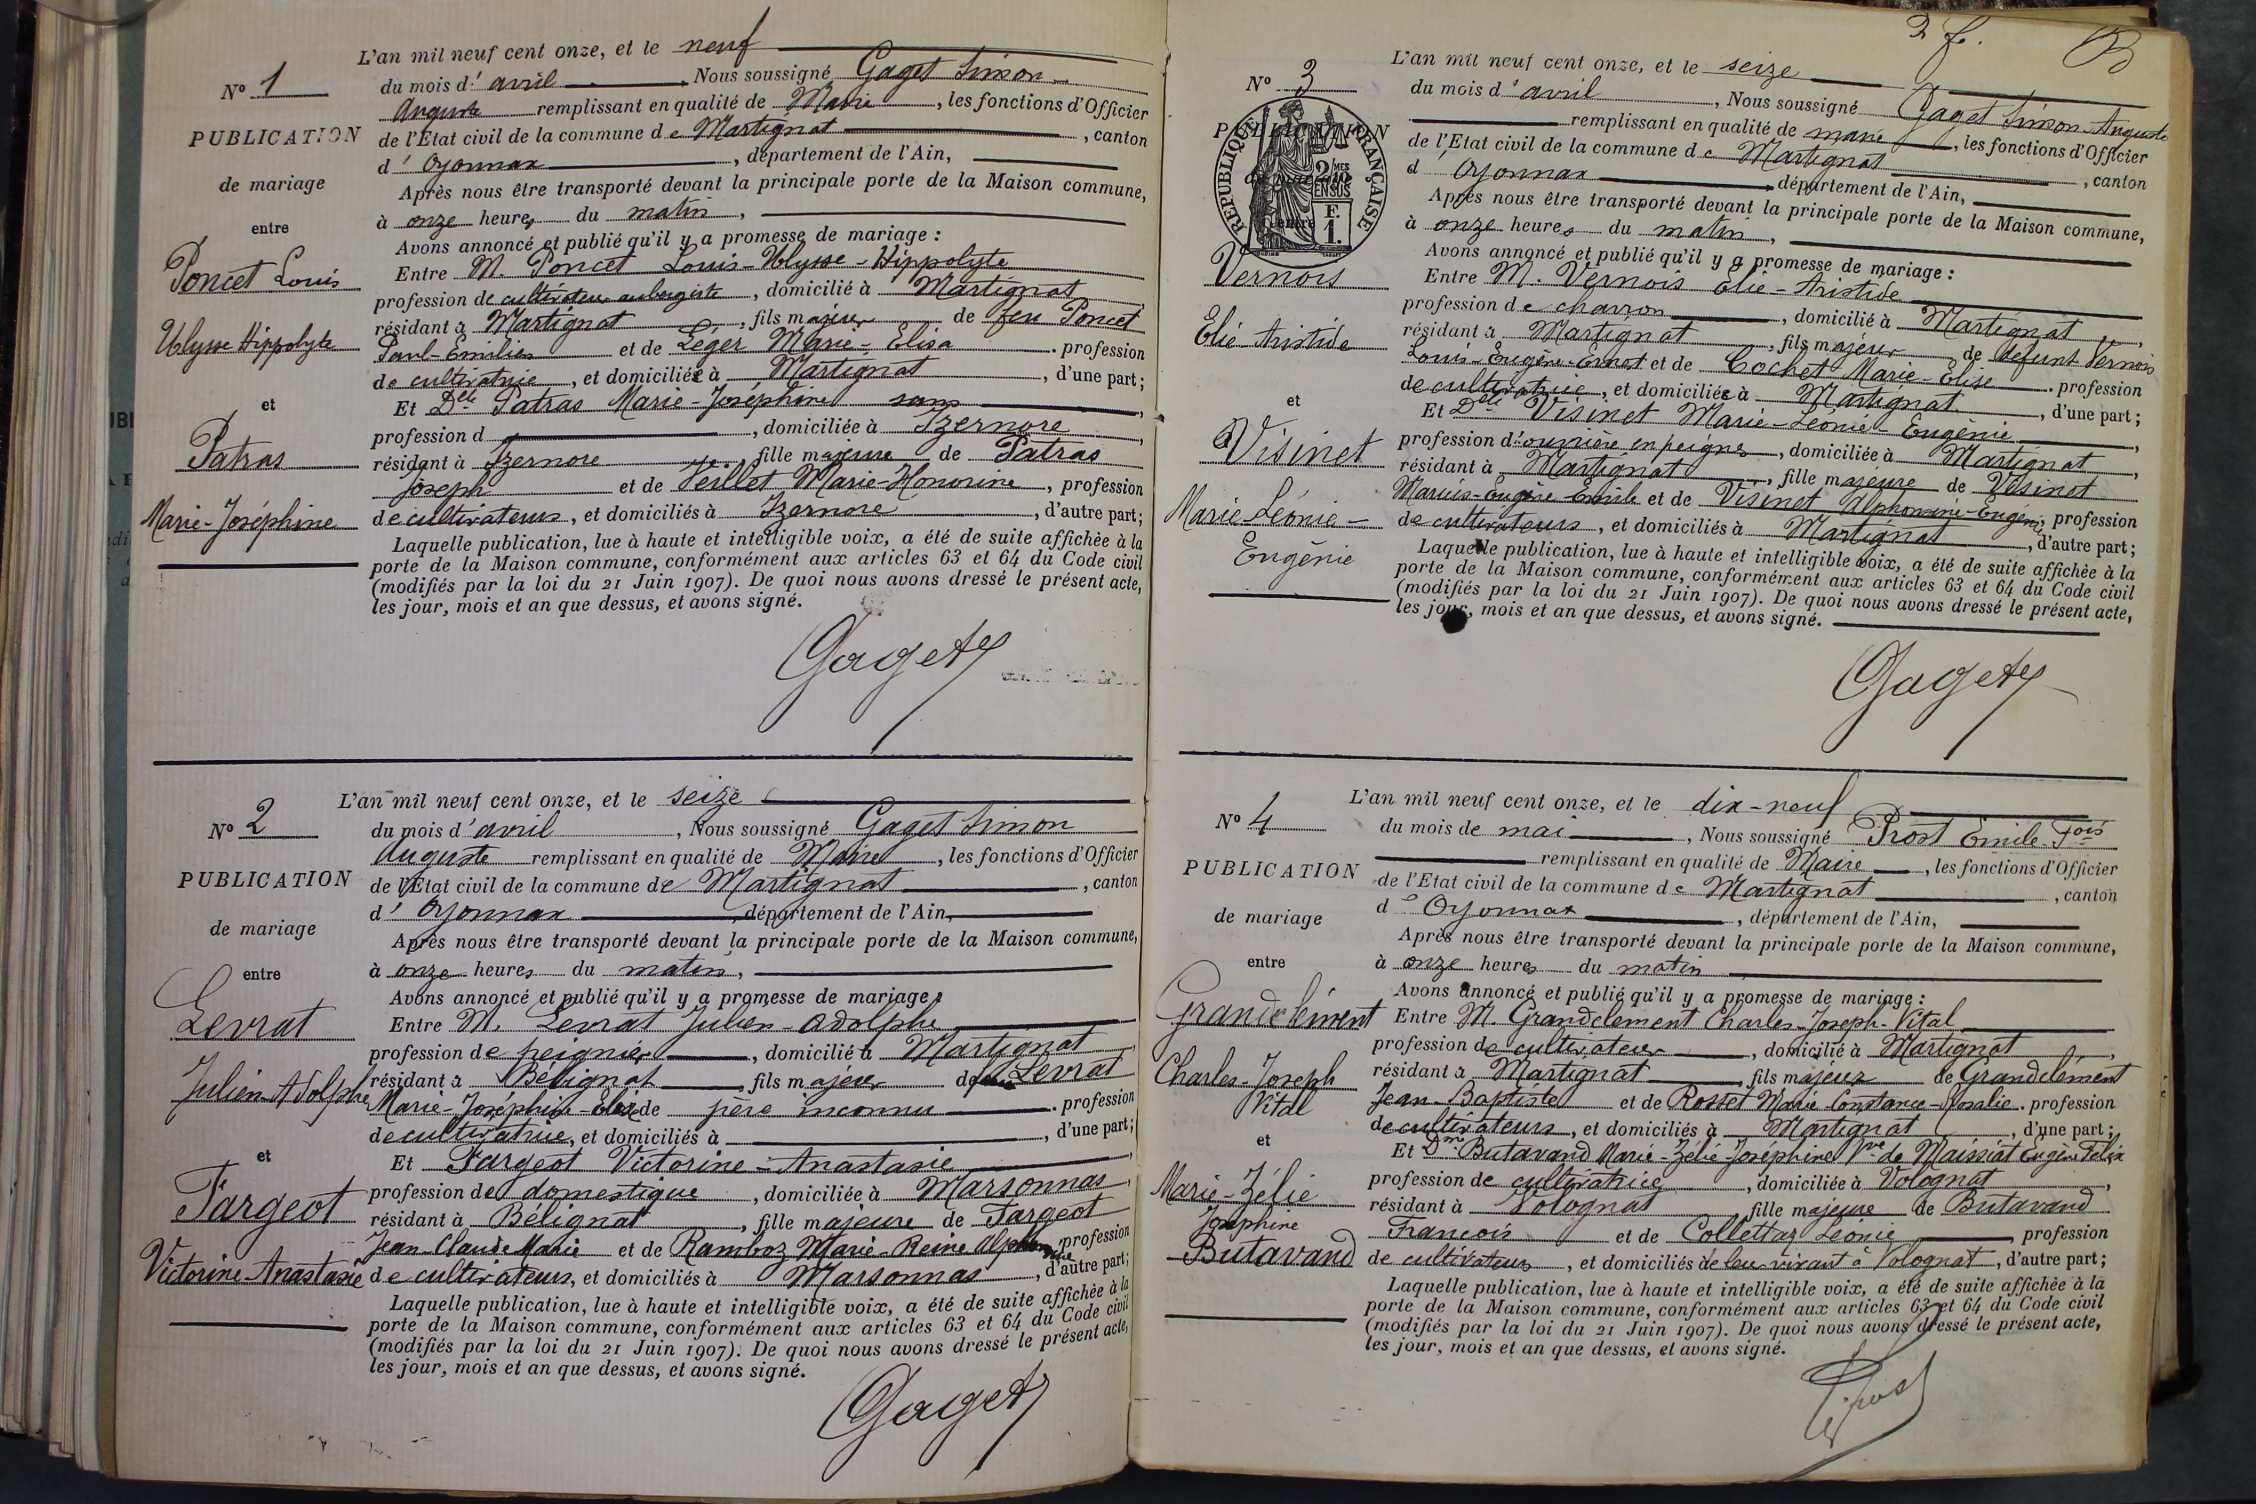 L'an mil neuf cent onze, et le neuf
N° 1
du mois d' avril, Nous soussigné Gaget Simon
Auguste remplissant en qualité de Maire, les fonctions d'Officier
PUBLICATION
de l'État civil de la commune de Martignat, canton
d' Oyonnax, département de l'Ain,
de mariage
Après nous être transporté devant la principale porte de la Maison commune,
à onze heures du matin,
entre
Avons annoncé et publié qu'il y a promesse de mariage :
Poncet Louis
Entre M. Poncet Louis-Ulysse-Hippolyte
profession de cultivateur aubergiste, domicilié à Martignat,
résidant à Martignat, fils majeur de feu Poncet
Ulysse Hippolyte
Paul-Emilien et de Léger Marie-Elisa. profession
de cultivatrice, et domiciliée à Martignat, d'une part;
et
Et Delle Patras Marie-Joséphine sans,
Patras
profession d, domiciliée à Izernore,
résidant à Izernore, fille majeure de Patras
Joseph et de Veillet Marie-Honorine, profession
Marie-Joséphine
de cultivateurs, et domiciliés à Izernore, d'autre part;
Laquelle publication, lue à haute et intelligible voix, a été de suite affichée à la
porte de la Maison commune, conformément aux articles 63 et 64 du Code civil
(modifiés par la loi du 21 Juin 1907). De quoi nous avons dressé le présent acte,
les jour, mois et an que dessus, et avons signé.
Gaget
L'an mil neuf cent onze, et le seize
N° 2
du mois d' avril, Nous soussigné Gaget Simon
Auguste remplissant en qualité de Maire, les fonctions d'Officier
PUBLICATION
de l'État civil de la commune de Martignat, canton
d' Oyonnax, département de l'Ain,
de mariage
Après nous être transporté devant la principale porte de la Maison commune,
à onze heures du matin,
entre
Avons annoncé et publié qu'il y a promesse de mariage :
Levrat
Entre M. Levrat Julien-Adolphe
profession de peignier, domicilié à Martignat,
Julien-Adolphe
résidant à Bélignat, fils majeur de Levrat
Marie-Joséphine- et de père inconnu. profession
de cultivatrice, et domiciliés à, d'une part;
et
Et Fargeot Victorine-Anastasie,
Fargeot
profession de domestique, domiciliée à Marsonnas,
résidant à Bélignat, fille majeure de Fargeot
Jean-Claude Marie et de Ramboz Marie-Reine Alphonsine, profession
Victorine-Anastasie
de cultivateurs, et domiciliés à Marsonnas, d'autre part;
Laquelle publication, lue à haute et intelligible voix, a été de suite affichée à la
porte de la Maison commune, conformément aux articles 63 et 64 du Code civil
(modifiés par la loi du 21 Juin 1907). De quoi nous avons dressé le présent acte,
les jour, mois et an que dessus, et avons signé.
Gaget
2 f.
L'an mil neuf cent onze, et le seize
N° 3
du mois d' avril, Nous soussigné Gaget Simon-Auguste
remplissant en qualité de maire, les fonctions d'Officier
PUBLICATION
RÉPUBLIQUE FRANÇAISE
2 MES
EN SUS
F.
1.
de l'Etat civil de la commune de Martignat, canton
d' Oyonnax, département de l'Ain,
de mariage
Après nous être transporté devant la principale porte de la Maison commune,
entre
à onze heures du matin,
Avons annoncé et publié qu'il y a promesse de mariage :
Vernois
Entre M. Vernois Elie-Aristide
profession de charron, domicilié à Martignat,
Elie Aristide
résidant à Martignat, fils majeur de défunt Vernois
Louis-Eugène-Ernest et de Cochet Marie-Elise. profession
de cultivatrice, et domiciliée à Martignat, d'une part;
et
Et Delle Visinet Marie-Léonie-Eugénie,
Visinet
profession d'ouvrière en peignes, domiciliée à Martignat,
résidant à Martignat, fille majeure de Visinet
Marie-Léonie-
Marius-Eugène-Emile et de Visinet Alphonsine-Eugénie, profession
de cultivateurs, et domiciliés à Martignat, d'autre part;
Eugénie
Laquelle publication, lue à haute et intelligible voix, a été de suite affichée à la
porte de la Maison commune, conformément aux articles 63 et 64 du Code civil
(modifiés par la loi du 21 Juin 1907). De quoi nous avons dressé le présent acte,
les jour, mois et an que dessus, et avons signé.
Gaget
L'an mil neuf cent onze, et le dix-neuf
N° 4
du mois de mai, Nous soussigné Prost Emile-Fois
remplissant en qualité de Maire, les fonctions d'Officier
PUBLICATION
de l'Etat civil de la commune de Martignat, canton
d' Oyonnax, département de l'Ain,
de mariage
Après nous être transporté devant la principale porte de la Maison commune,
entre
à onze heures du matin
Avons annoncé et publié qu'il y a promesse de mariage :
Grandclément
Entre M. Grandclement Charles-Joseph-Vital
profession de cultivateur, domicilié à Martignat,
Charles-Joseph
résidant à Martignat, fils majeur de Grandclément
Vital
Jean-Baptiste et de Rosset Marie Constance-Rosalie. profession
de cultivateurs, et domiciliés à Martignat, d'une part;
et
Et Dme Butavand Marie-Zélie-Joséphine Vve de Maissiat Eugène Félix
Marie-Zélie
profession de cultivatrice, domiciliée à Volognat,
Joséphine
résidant à Volognat, fille majeure de Butavand
Butavand
François et de Collettaz Léonie, profession
de cultivateurs, et domiciliés de leur vivant à Volognat, d'autre part;
Laquelle publication, lue à haute et intelligible voix, a été de suite affichée à la
porte de la Maison commune, conformément aux articles 63 et 64 du Code civil
(modifiés par la loi du 21 Juin 1907). De quoi nous avons dressé le présent acte,
les jour, mois et an que dessus, et avons signé.
Prost